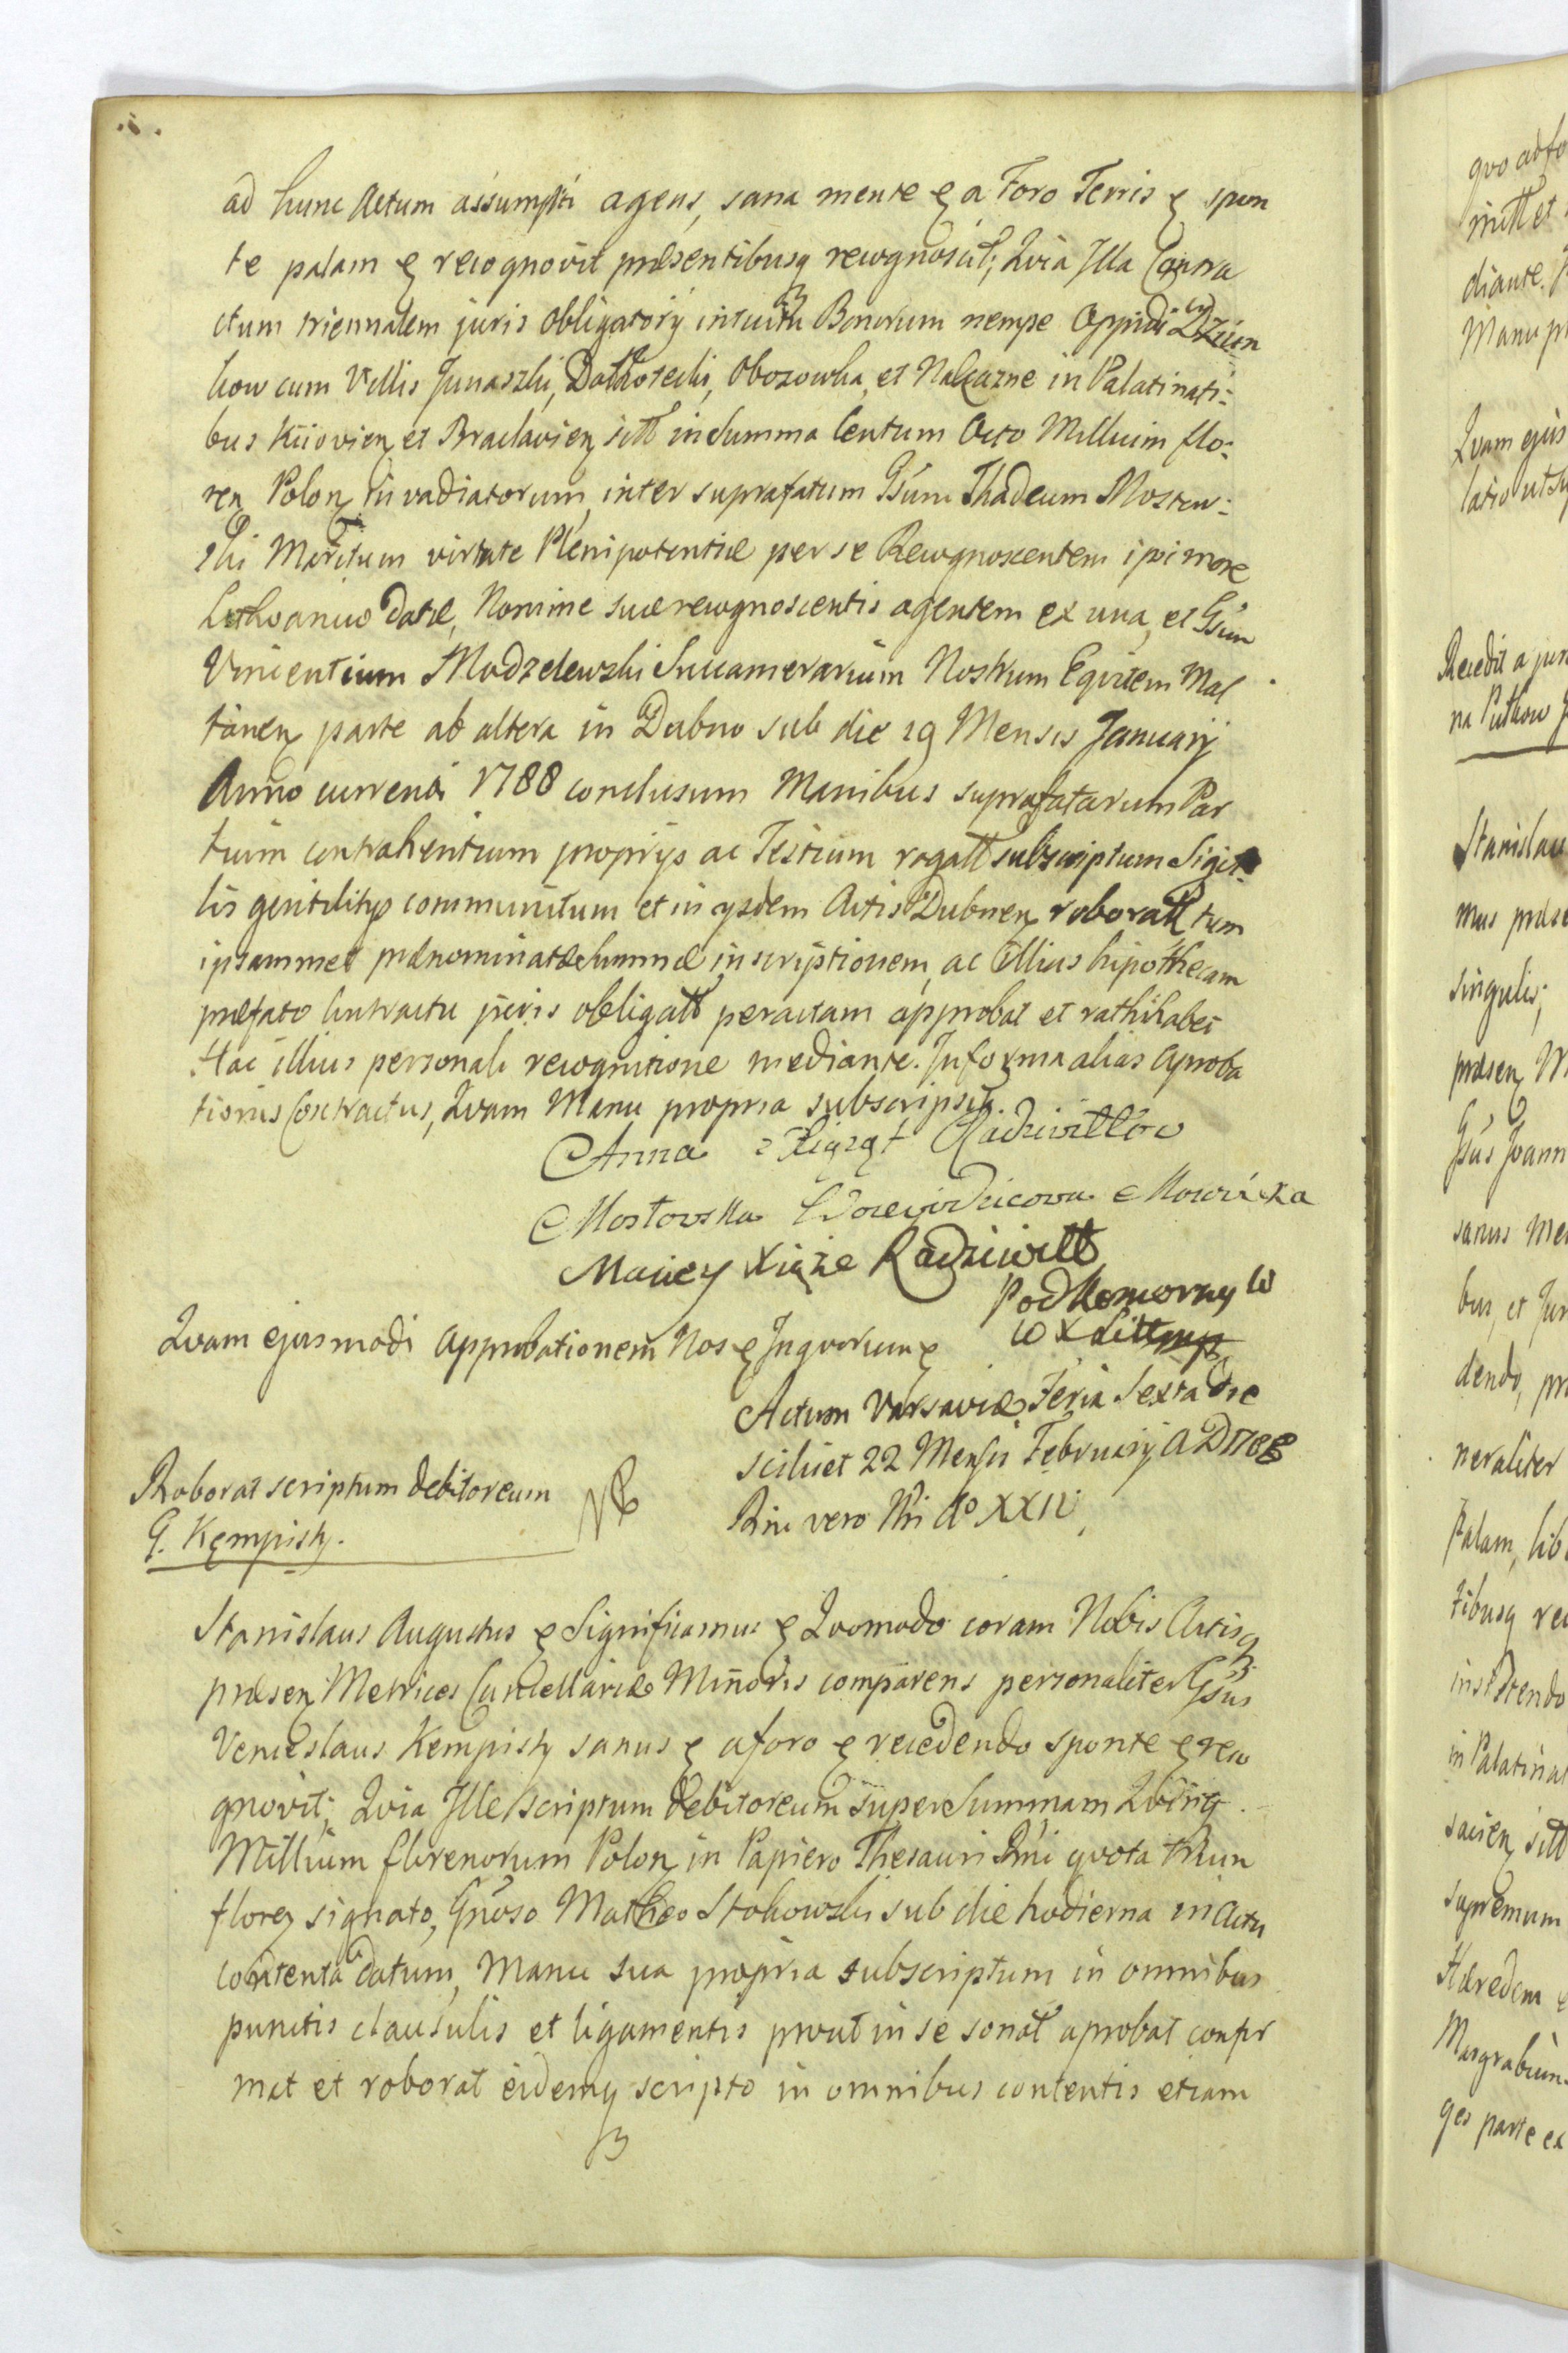 ad hunc Actum assumpti agens, sana mente & a Foro Terris & spon
te palam & recognovit præsentibusq recognoscit; Qvia Illa Contra
ctum triennalem juris obligatorij intuitu Bonorum nempe Oppidi Dziun
kow cum Villis Junaszki, Obozowka, et Nakazne in Palatinati=
bus Kiiovien et Braclavien sitt in Summa Centum Octo Millium flo=
ren Polon in vadiatorum, inter suprafatum Gsum Thadeum Mostow=
ski Maritum virtute Plenipotentiæ per se Recognoscentem ipsi more
Lithvanico datæ, Nomine suæ recognoscentis agentem ex una, et Gsum
Vincentium Modzelewski Succamerarium Nostrum Eqvitem Mal
tanen parte ab altera in Dubno sub die 19 Mensis Januarij
Anno currenti 1788 conclusum Manibus suprafatarum Par
tium contrahentium proprijs ac Testium rogatt subscriptum Sigil
lis gentilitijs communitum et in ijsdem Actis Dubnen roboratt tum
ipsammet prænominatæ Summæ inscriptionem, ac Illius hipothecam
præfato Contractu juris obligatt peractam approbat et rathihabet
Hac illius personali recognitione mediante. In forma alias Aproba
tionis Contractus, Qvam Manu propria subscripsit
Anna z Xiążąt Radziwiłłów
Mostowska Woiewodzicowa Mazowiecka
Maciey Xiąże Radziwiłł
Podkomorzy W
W X Litt
Qvam ejusmodi Approbationem Nos & Inqvorum &
Actum Varsaviæ Feria Sexta Die
scilicet 22 Mensis Februarij A D 1788
Rni vero Nri Ao XXIV,
Roborat scriptum debitoreum
G. Kempisty.
Stanislaus Augustus & Significamus & Qvomodo coram Nobis Actisq
præsen Metrices Cancellariæ Minoris comparens personaliter Gsus
Venceslaus Kempisty sanus & a foro & recedendo sponte & reco
gnovit; Qvia Ille scriptum debitoreum super Summam Qvinq
Millium florenorum Polon in Papiero Thesauri Rni qvota trium
floren signato, Gnoso Matheo Stokowski sub die hodierna in Actu
contenta datum, Manu sua propria subscriptum in omnibus
punctis clausulis et ligamentis prout in se sonat aprobat confir
mat et roborat eidemq scripto in omnibus contentis etiam